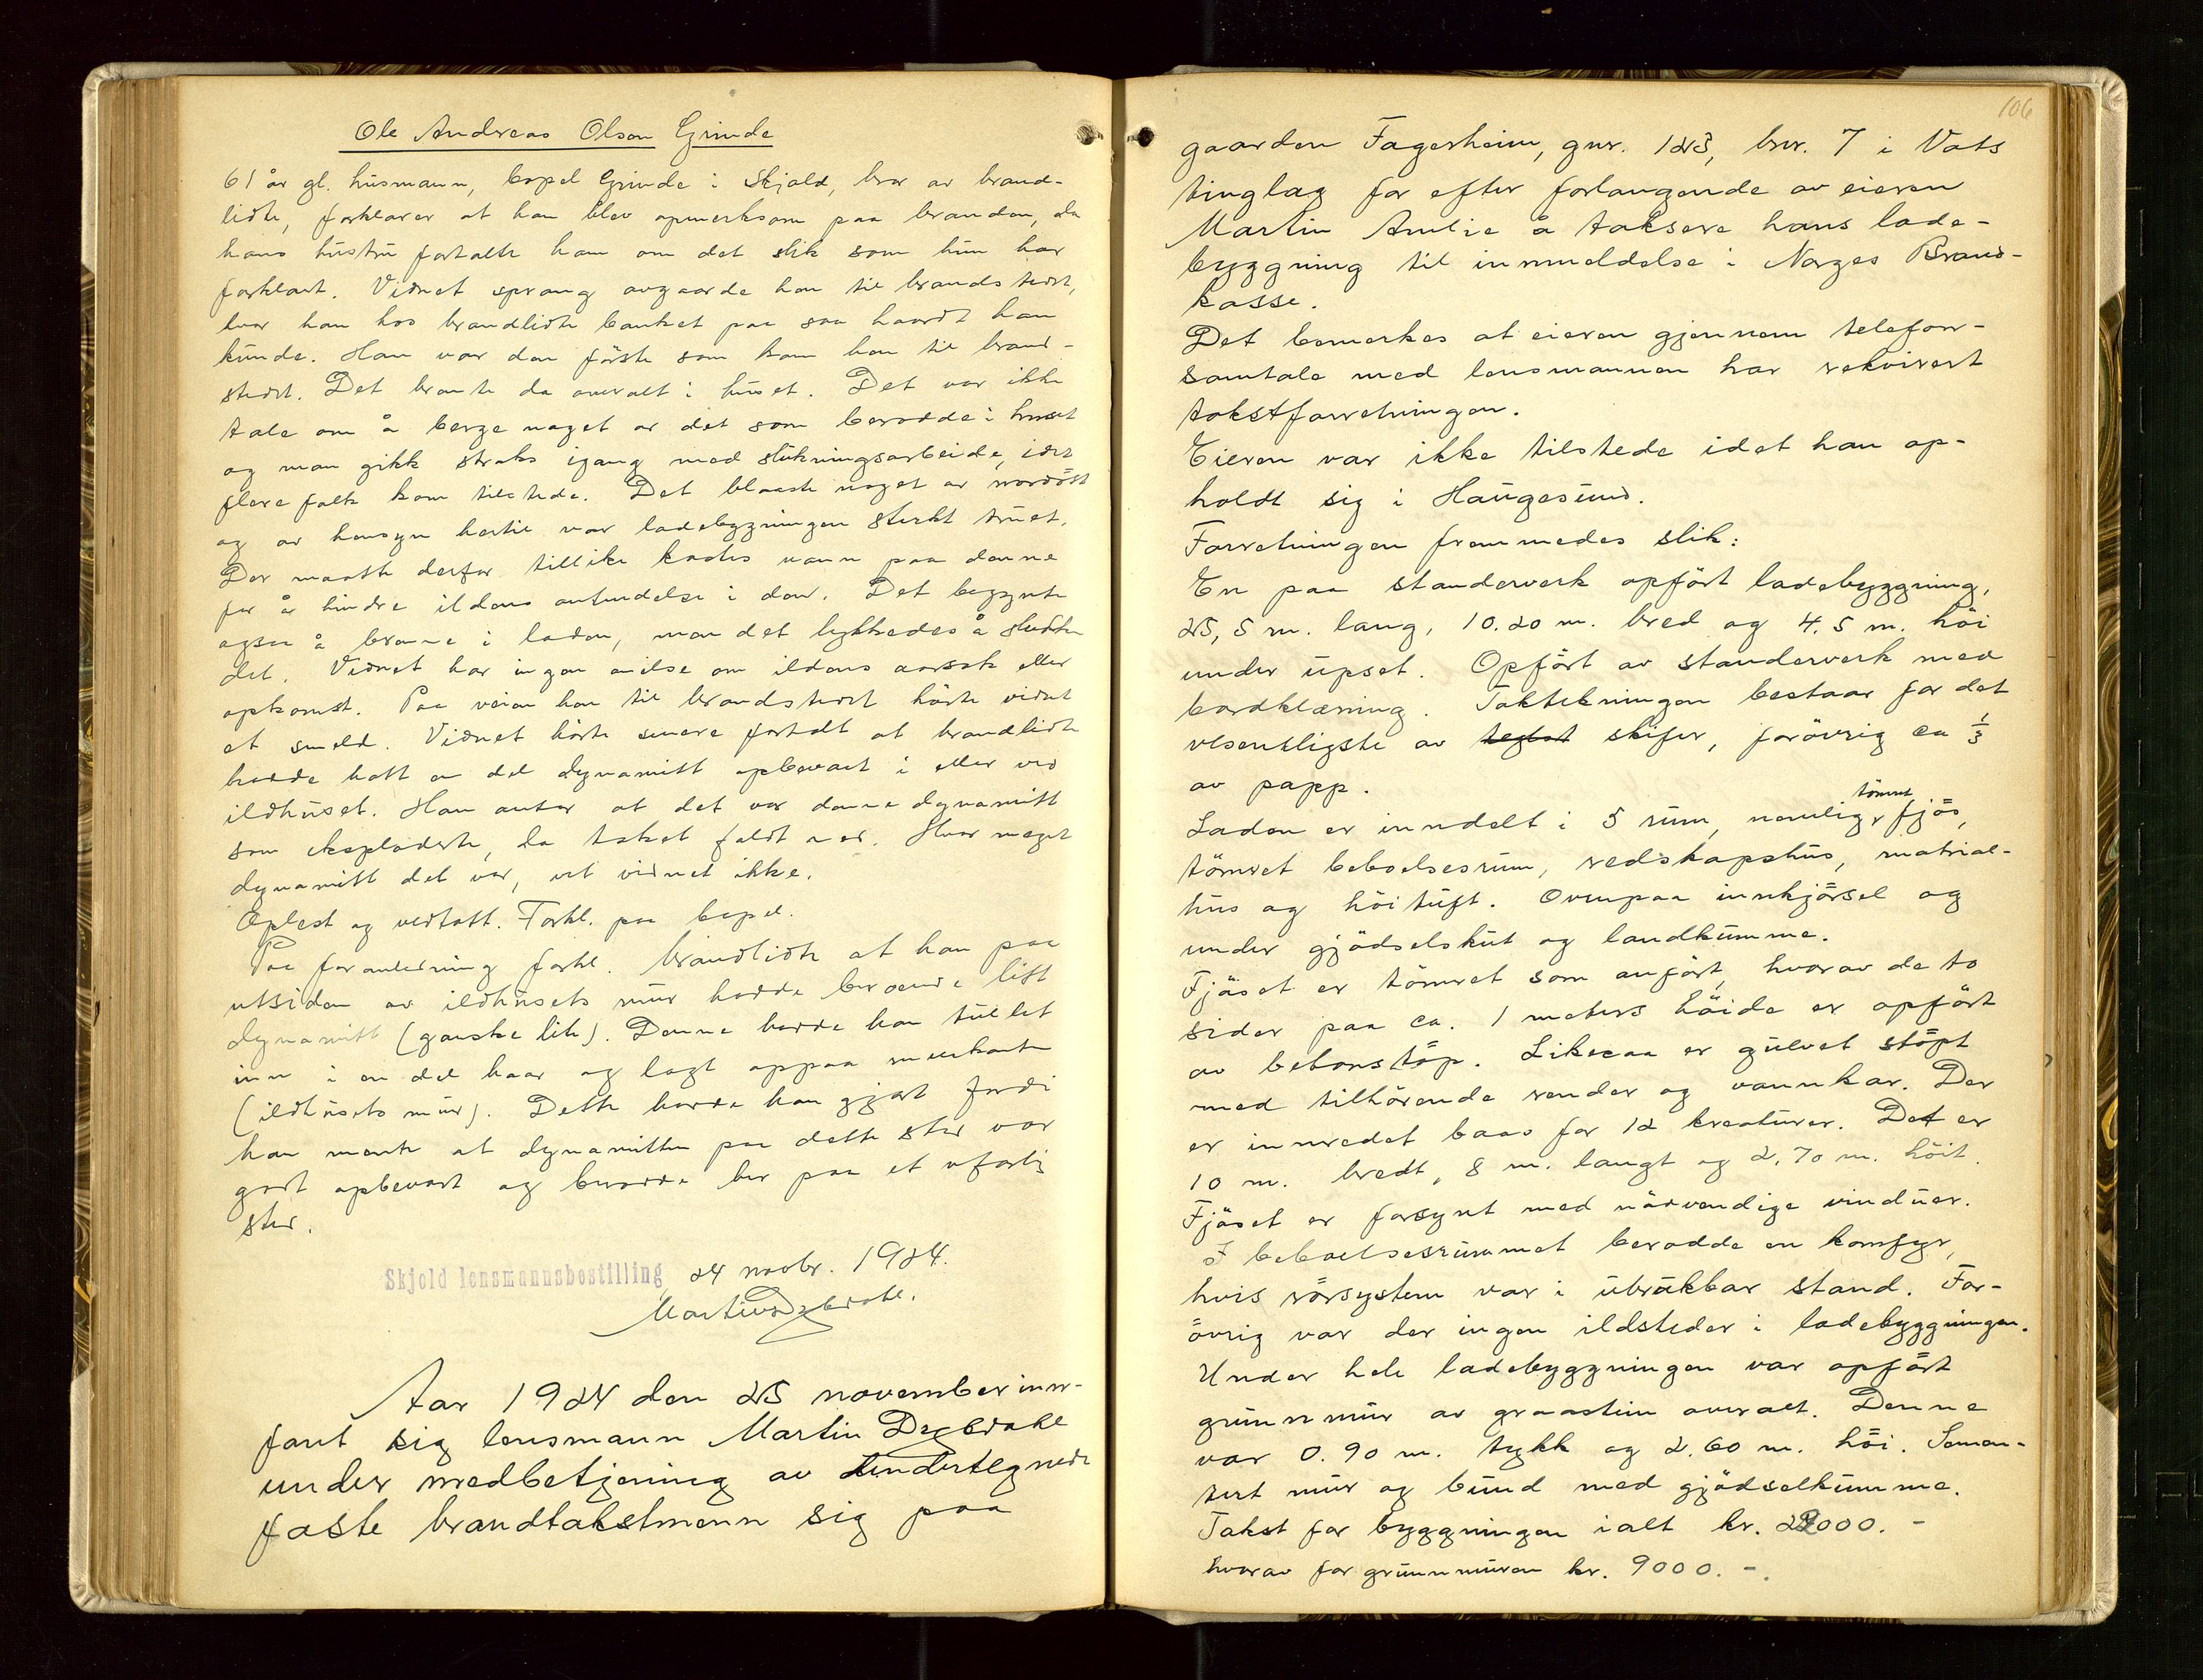 Ole Andreas Olson Grinde
61 år gl. husmann, bopel Grinde i Skjold, bror av brand-
lidte, forklarer at han blev opmerksom paa branden, da
hans hustru fortalte ham om det slik som hun har
forklart. Vidnet sprang avgaarde hen til brandstedet,
hvor han hos brandlidte banket paa saa haardt han
kunde. Han var den förste som kom hen til brand-
stedet. Det brante da overalt i huset. Det var ikke
tale om å berge noget av det som berodde i huset
og man gikk straks igang med slukningsarbeide, idet
flere folk kom tilstede. Det blaaste noget av nordöst
og av hensyn hertil var ladebygningen sterkt truet.
Der maatte derfor tillike kastes vann paa denne
for å hindre ildens antendelse i den. Det begynte
ogsaa å brenne i laden, men det lykkedes å slukke
det. Vidnet har ingen anelse om ildens aarsak eller
opkomst. Paa veien hen til brandstedet hörte vidnet
et smeld. Vidnet hörte senere fortalt at brandlidte
hadde hatt en del dynamitt opbevart i eller ved
ildhuset. Han antar at det var denne dynamitt
som eksploderte, da taket faldt ned. Hvor meget
dynamitt det var, vet vidnet ikke.
Oplest og vedtatt. Forkl. paa bopel.
Paa foranledning forkl. brandlidte at han paa
utsiden av ildhusets mur hadde beroende litt
dynamitt (ganske lite). Denne hadde han tullet
inn i en del haar og lagt oppaa murkanten
(ildhusets mur). Dette hadde han gjort fordi
han mente at dynamitten paa dette sted var
godt opbevart og berodde her paa et ufarlig
sted.
Skjold lensmannsbestilling, 24 novbr. 1924.
Martin Dybdahl.
Aar 1924 den 25 november inn-
fant sig lensmann Martin Dybdahl
under medbetjening av undertegnede
faste brandtakstmenn sig paa
106
gaarden Fagerheim, gnr. 123, bnr. 7 i Vats
tinglag for efter forlangende av eieren
Martin Amlie å taksere hans lade-
byggning til innmeldelse i Norges Brand-
kasse.
Det bemerkes at eieren gjennem telefon-
samtale med lensmannen har rekvirert
takstforretningen.
Eieren var ikke tilstede idet han op-
holdt sig i Haugesund.
Forretningen fremmedes slik:
En paa standerverk opfört ladebyggning,
25,5 m. lang, 10.20 m. bred og 4.5 m. höi
under upset. Opfört av standerverk med
bordklæning. Taktekningen bestaar for det
vesentligste av teglst skifer, forövrig ca 1/3
av papp.
Laden er inndelt i 5 rum, nemlig tömret fjös,
tömret beboelsesrum, redskapshus, matrial-
hus og höituft. Ovenpaa innkjörsel og
under gjödselskut og landkumme.
Fjöset er tömret som anfört, hvorav de to
sider paa ca. 1 meters höide er opfört
av betonstöp. Likesaa er gulvet stöpt
med tilhörende render og vannkar. Der
er innredet baas for 12 kreaturer. Det er
10 m. bredt, 8 m. langt og 2.70 m. höit.
Fjöset er forsynt med nödvendige vinduer.
I beboelsesrummet berodde en komfyr,
hvis rörsystem var i ubrukbar stand. For-
övrig var der ingen ildsteder i ladebyggningen.
Under hele ladebyggningen var opfört
grunnmur av graasten overalt. Denne
var 0.90 m. tykk og 2.60 m. höi. Semen-
tert mur og bund med gjödselkumme.
Takst for byggningen ialt kr. 29000.-
hvorav for grunnmuren kr. 9000.-.